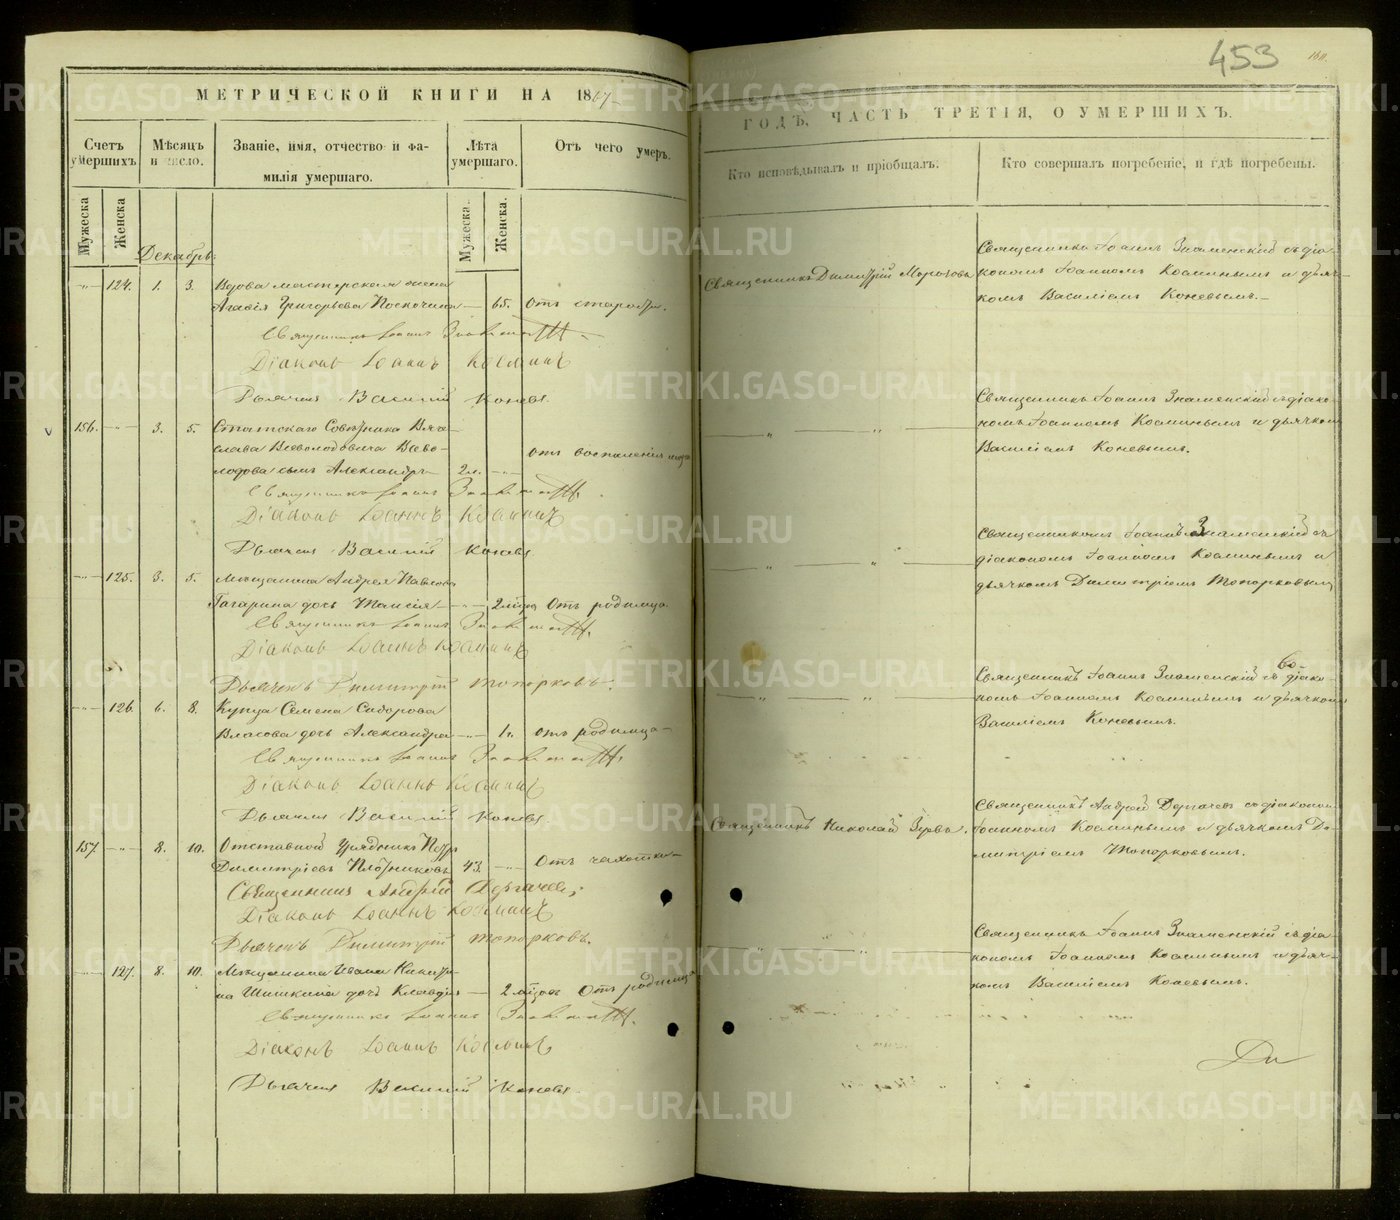 453
МЕТРИЧЕСКОЙ КНИГИ НА 1867
ГОДЪ, ЧАСТЬ ТРЕТІЯ, О УМЕРШИХЪ.
Счетъ умершихъ.
Мѣсяцъ и число.
Званіе, имя, отчество и фамилія умершаго.
Лѣта умершаго.
Отъ чего умеръ.
Кто исповѣдывалъ и пріобщалъ.
Кто совершалъ погребеніе, и гдѣ погребены.
Мужеска
Женска
Мужеска.
Женска.
Декабрь.
124. 1. 3. Вдова мастерская жена
Агафія Григорьева 65. Отъ старости.
Священникъ Димитрій
Священникъ Іоаннъ Знаменскій съ діа-
кономъ Іоанномъ Косминымъ и дьяч-
комъ Василіемъ Коневымъ.
Священникъ Іоаннъ
Діаконъ Іоаннъ Косминъ
Дьячекъ Василій Коневъ.
156. 3. 5. Статскаго Совѣтника
Всеволодовича Всево-
лодова сынъ Александръ 2 л. отъ воспаленія
Священникъ Іоаннъ Знаменскій съ діако-
номъ Іоанномъ Косминымъ и дьячкомъ
Василіемъ Коневымъ.
Священникъ Іоаннъ
Діаконъ Іоаннъ Косминъ
Дьячекъ Василій Коневъ.
125. 3. 5. Мѣщанина Андрея Павлова
Гагарина дочь Таисія Отъ родимца
Священникомъ Іоаннъ Знаменскій съ
діакономъ Іоанномъ Косминымъ и
дьячкомъ Димитріемъ Топорковымъ
Священникъ Іоаннъ
Діаконъ Іоаннъ Косминъ
Дьячекъ Димитрій Топорковъ.
126. 6. 8. Купца Семена Сидорова
Власова дочь Александра 1 г. отъ родимца
Священникъ Іоаннъ Знаменскій съ діако-
номъ Іоанномъ Косминымъ и дьячкомъ
Василіемъ Коневымъ.
Священникъ Іоаннъ
Діаконъ Іоаннъ Косминъ
Дьячекъ Василій Коневъ
157. 8. 10. Отставной Урядникъ Петръ
Димитріевъ Плотниковъ 43. Отъ чахотки
Священникъ Николай
Священникъ Андрей Дергачевъ съ діакономъ
Іоанномъ Косминымъ и дьячкомъ Ди-
митріемъ Топорковымъ.
Священникъ Андрей Дергачевъ;
Діаконъ Іоаннъ Косминъ
Дьячекъ Димитрій Топорковъ.
127. 8. 10. Мѣщанина Ивана Никити-
на Шишкина дочь Клавдія Отъ родимца
Священникъ Іоаннъ Знаменскій съ діа-
кономъ Іоанномъ Косминымъ и дьяч-
комъ Василіемъ Коневымъ.
Священникъ Іоаннъ
Діаконъ Іоаннъ Косминъ
Дьячекъ Василій Коневъ.
METRIKI.GASO-URAL.RU